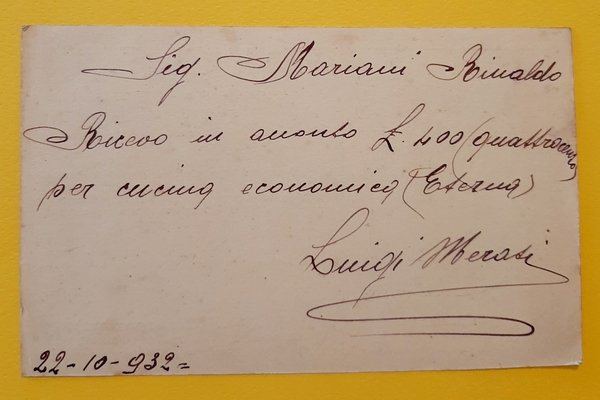 Sig. Mariani Rinaldo
Ricevo in acconto £. 400 (quattrocento)
per cucina economica (Eterna)
Luigi Merati
22-10-932=